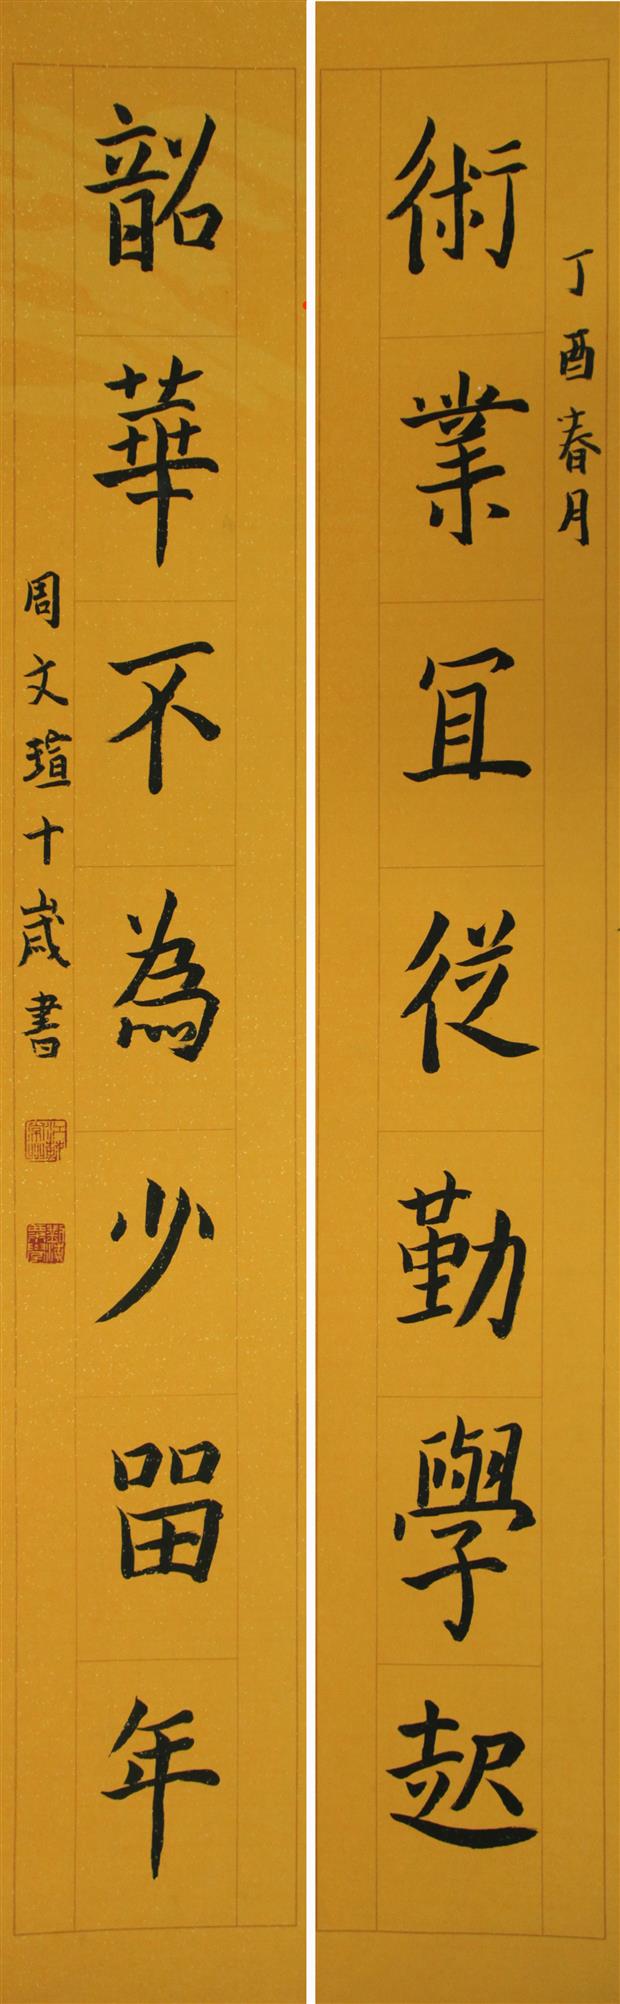 丁酉春月
術業宜從勤學起
韶華不為少留年
周文瑄十歲書